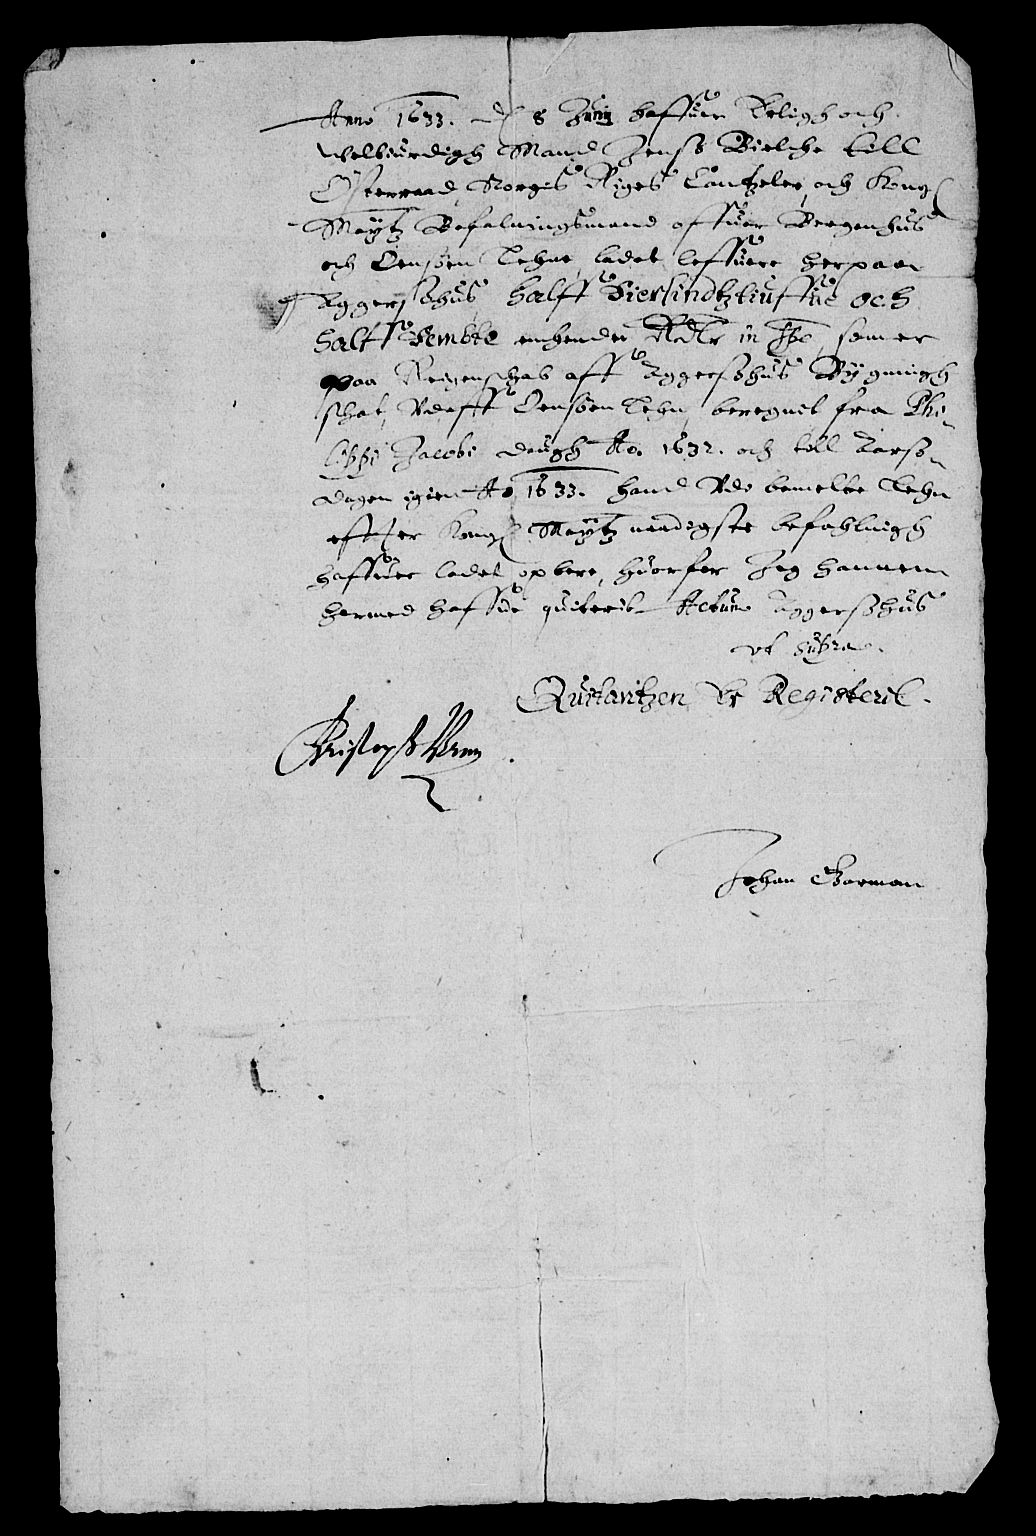 Anno 1633. d 8 Junij haffuer Erligh och
Welbiurdigh Mand Jenss Bielche till
Østerraad, Norgis Riges Cantzeler, och Kong
Maytz Befalningsmand offuer Bergenhus
och Lehne, ladet leffuere her paa
Aggershus halff fiersindtztiuffue och
halff femte Rdlr in Spe, som er
paa Regenschab aff Aggersshus Bygningh
schat, Vdaff Lehn, beregnit fra Phi-
lippi Jacobi daugh Ao. 1632. och till Aars-
dagen igien Ao 1633. hand Vdi bemelte Lehn
effter Kong Maytz naadigste befahlnigh
haffuer ladet opbere, huorfor Jeg hannem
hermed haffuer quiterit Actum Aggersshus
vt supra.
Quitantzen Er Registerit.
Christopher Vrne
Johan Garman